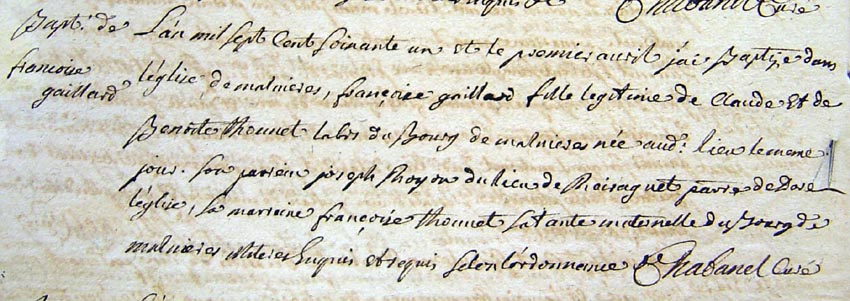 Chabanel Curé
Bapt. de françoise gaillard
L'an mil sept Cent soixante un et le premier avril j'ai Baptize dans
léglise de malnieres, françoise gaillard fille legitime de Claude Et de
Benoite thounet labrs du Bourg de malnieres née aud. lieu le meme
jour. son parrein joseph Royon du lieu de parre de Dore
léglise, sa marreine françoise thounet sa tante maternelle du Bourg de
malnieres illiteres Enquis et requis selon l'ordonnance Chabanel Curé